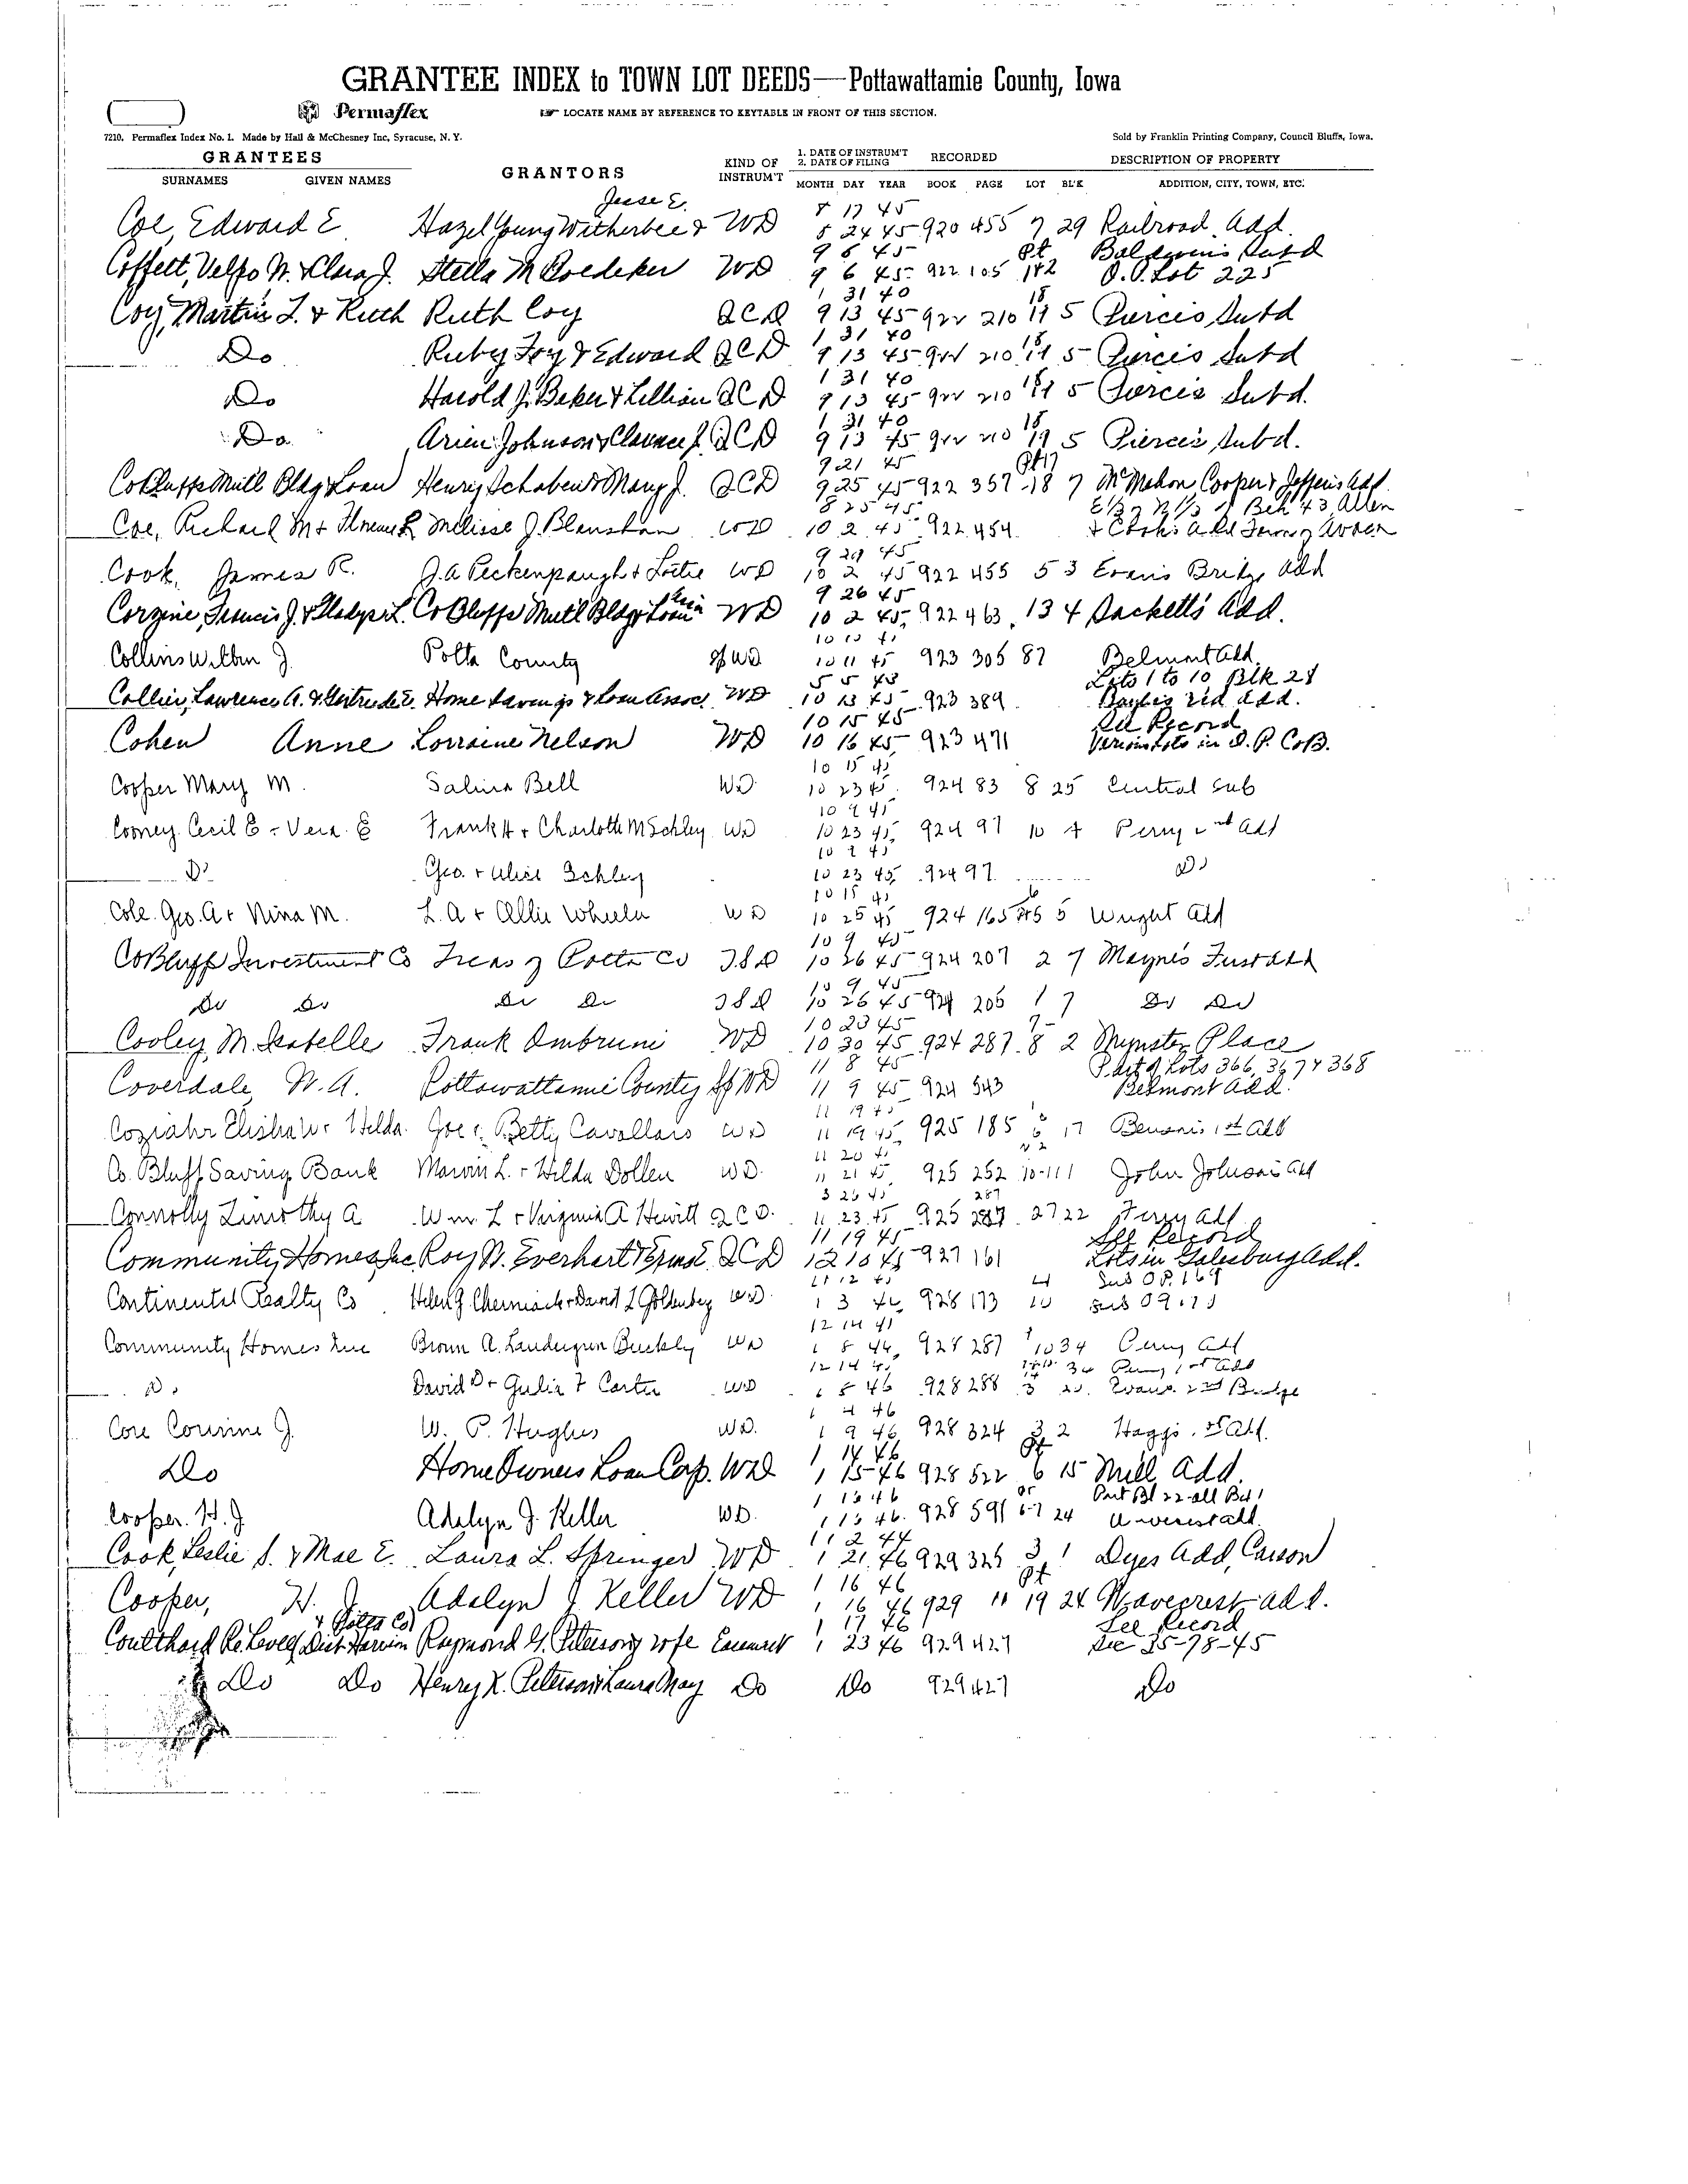 GRANTEE INDEX to TOWN LOT DEEDS—Pottawattamie County, Iowa
Permaflex
LOCATE NAME BY REFERENCE TO KEYTABLE IN FRONT OF THIS SECTION.
7210. Permaflex Index No. 1. Made by Hall & McChesney Inc, Syracuse, N. Y.
Sold by Franklin Printing Company, Council Bluffs, Iowa.
GRANTEES GRANTORS KIND OF INSTRUM'T 1. DATE OF INSTRUM'T 2. DATE OF FILING RECORDED DESCRIPTION OF PROPERTY
SURNAMES GIVEN NAMES MONTH DAY YEAR BOOK PAGE LOT BL'K ADDITION, CITY, TOWN, ETC.
Jesse E. 8 17 45
Coe, Edward E Hazel Young Witherbee & WD 8 24 45 920 455 7 29 Railroad Add.
9 6 45 Pt Baldwins Subd
Coffelt, Velpo W. & Clara J. Stella M Roedeker WD 9 6 45 922 105 1+2 O.P. Lot 225
1 31 40 18
Coy, Martin L. & Ruth Ruth Coy QCD 9 13 45 922 210 19 5 Pierces Subd
1 31 40 18
Do Ruby Foy & Edward QCD 9 13 45 922 210 19 5 Pierces Subd
1 31 40 18
Do Harold J. Baker & Lillian QCD 9 13 45 922 210 19 5 Pierces Subd.
1 31 40 18
Do Arien Johnson & Clarence J. QCD 9 13 45 922 210 19 5 Pierce's Subd.
9 21 45 Pt 17
Co Bluffs Mutl Bldg & Loan Henry Schaben & Mary J. QCD 9 25 45 922 357 18 7 McMahon, Cooper & Jefferis Add.
8 25 45 E 1/3 of N 1/3 of Blk 43, Allen
Coe, Richard M + Florence L Melissa J. Blanshan WD 10 2 45 922 454 & Cooks Add Town of Avoca
9 29 45
Cook, James R. J. A Peckenpaugh & Lottie WD 10 2 45 922 455 5 3 Evans Bridge Add
9 26 45
Corzine, Francis J. & Gladys L. Co Bluffs Mutl Bldg & Loan Assn WD 10 2 45 922 463 13 4 Sacketts Add.
Collins Wilbur J. Potta County Sp WD 10 11 45 923 305 87 Belmont Add.
5 5 43 Lots 1 to 10 Blk 28
Collier, Lawrence A. & Gertrude E. Home Savings & Loan Assoc. WD 10 13 45 923 389 Bayliss 2nd Add.
10 15 45 See Record
Cohen Anne Lorraine Nelson WD 10 16 45 923 471 Various Lots in O.P. CoB.
10 15 45
Cooper Mary M. Salina Bell WD 10 23 45 924 83 8 25 Central Sub
10 9 45
Cooney Cecil E - Vera E Frank H + Charlotte M Schley WD 10 23 45 924 97 10 4 Perry 2nd Add
10 9 45
Do Geo. + Alice Schley 10 23 45 924 97 Do
10 15 45 6
Cole Geo. A + Nina M. L. A + Allie Wheeler WD 10 25 45 924 165 5 Wright Add
10 9 45
Co Bluff Investment Co Treas of Potta Co TSD 10 26 45 924 207 2 7 Maynes First Add
10 9 45
Do Do Do Do TSD 10 26 45 924 206 1 7 Do Do
10 23 45 7-
Cooley, M. Isabelle Frank Ambruni WD 10 30 45 924 287 8 2 Mynster Place
11 8 45 Part of Lots 366, 367 & 368
Coverdale, W. A. Pottawattamie County Sp WD 11 9 45 924 543 Belmont Add.
11 19 45
Coziahr Elisha W + Helda Joe & Betty Cavallaro WD 11 19 45 925 185 6 17 Bensons 1st Add
11 20 45 N 2
Co. Bluff Saving Bank Marvin L. + Hilda Dollen WD 11 21 45 925 252 10-11 1 John Johnsons Add
3 26 45 287
Connolly Timothy A Wm. L + Virginia A Hewitt QCD. 11 23 45 925 287 27 22 Ferry Add
11 19 45 See Record
Community Homes Inc Roy W. Everhart QCD 12 10 45 927 161 Lots in Galesburg Add.
11 12 45 4 Sub OP. 169
Continental Realty Co Helen G. Cherniack + David L Goldenberg WD 1 3 46 928 173 10 Sub OP 171
12 14 45
Community Homes Inc Brown A. Landergren Buckley WD 1 8 46 928 287 10 34 Perry Add
12 14 45 34 Perry 1st Add
Do David D + Julia F Carter WD 1 8 46 928 288 3 20 Evans 2nd Bridge
1 4 46
Core Corinne J. W. P. Hughes WD. 1 9 46 928 324 3 2 Haggs Add.
1 14 46 Pt
Do Home Owners Loan Corp. WD 1 15 46 928 522 6 15 Mill Add.
1 16 46 Part Bl 22 all Bl 1
Cooper. H. J Adalyn J. Keller WD. 1 16 46 928 591 24
11 2 44
Cook, Leslie S. & Mae E. Laura L. Springer WD 1 21 46 929 325 3 1 Dyes Add, Carson
1 16 46 Pt
Cooper, H. J Adalyn J Keller WD 1 16 46 929 11 19 24 Wavecrest Add.
& Potta Co) 1 17 46 See Record
Coulthard Re Levee Dist Harrison Raymond G. Peterson & wife Easement 1 23 46 929 427 Sec 35-78-45
Do Do Henry K. Peterson & Laura May Do Do 929 427 Do